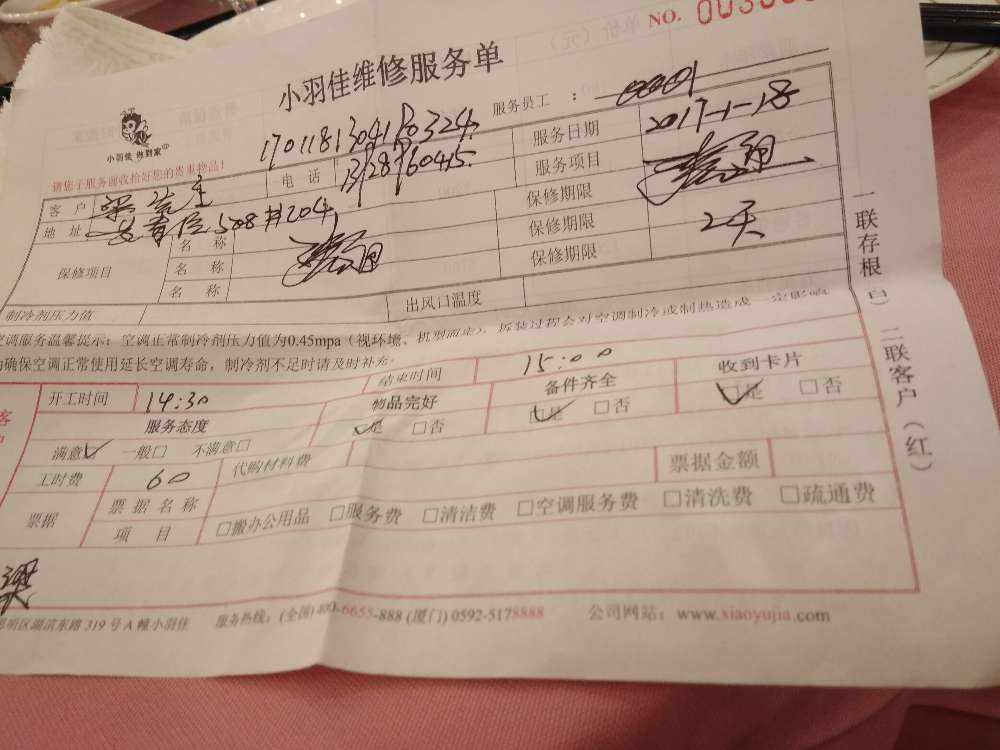 NO. 0030
小羽佳维修服务单
小羽佳 做到家
请您于服务前收拾好您的贵重物品!
17011813041P0324
服务员工 : 00001
客户 梁先生 电话 服务日期 2017-1-18
地址 508#204 服务项目
保修项目 名称 保修期限
名称 保修期限 2天
名称 保修期限
制冷剂压力值 出风口温度
空调服务温馨提示:空调正常制冷剂压力值为0.45mpa(视环境、机型而定),拆装过程会对空调制冷或制热造成一定影响
为确保空调正常使用延长空调寿命,制冷剂不足时请及时补充
客户
开工时间 14:30 结束时间 15:00
服务态度 物品完好 备件齐全 收到卡片
满意☑ 一般□ 不满意□ ☑是 □否 ☑是 □否 ☑是 □否
工时费 60 代购材料费 票据金额
票据 票据名称
项目 □搬办公用品 □服务费 □清洁费 □空调服务费 □清洗费 □疏通费
梁
思明区湖滨东路319号A幢小羽佳 服务热线:(全国)400-6655-888 (厦门) 0592-5178888 公司网站:www.xiaoyujia.com
一联存根(白) 二联客户(红)